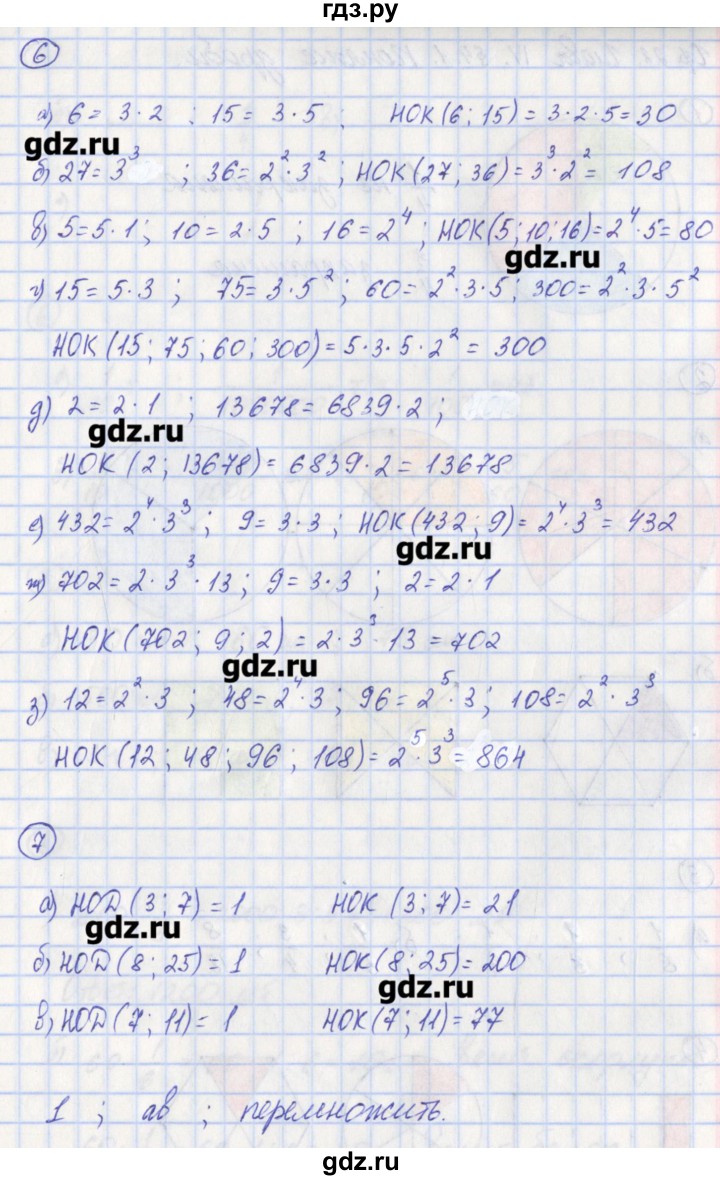 гдз.ру
6
а) 6 = 3·2 ; 15 = 3·5 ; НОК(6; 15) = 3·2·5 = 30
gdz.ru
б) 27 = 3³ ; 36 = 2²·3² ; НОК(27; 36) = 3³·2² = 108
в) 5 = 5·1 ; 10 = 2·5 ; 16 = 2⁴ ; НОК(5; 10; 16) = 2⁴·5 = 80
gdz.ru
г) 15 = 5·3 ; 75 = 3·5² ; 60 = 2²·3·5 ; 300 = 2²·3·5²
НОК (15; 75; 60; 300) = 5·3·5·2² = 300
д) 2 = 2·1 ; 13678 = 6839·2 ;
gdz.ru
НОК (2; 13678) = 6839·2 = 13678
е) 432 = 2⁴·3³ ; 9 = 3·3 ; НОК(432; 9) = 2⁴·3³ = 432
gdz.ru
ж) 702 = 2·3³·13 ; 9 = 3·3 ; 2 = 2·1
НОК (702; 9; 2) = 2·3³·13 = 702
gdz.ru
з) 12 = 2²·3 ; 48 = 2⁴·3 ; 96 = 2⁵·3 ; 108 = 2²·3³
НОК (12; 48; 96; 108) = 2⁵·3³ = 864
7
а) НОД (3; 7) = 1 НОК (3; 7) = 21
gdz.ru
б) НОД (8; 25) = 1 НОК (8; 25) = 200
gdz.ru
в) НОД (7; 11) = 1 НОК (7; 11) = 77
1 ; ав ; перемножить.
gdz.ru